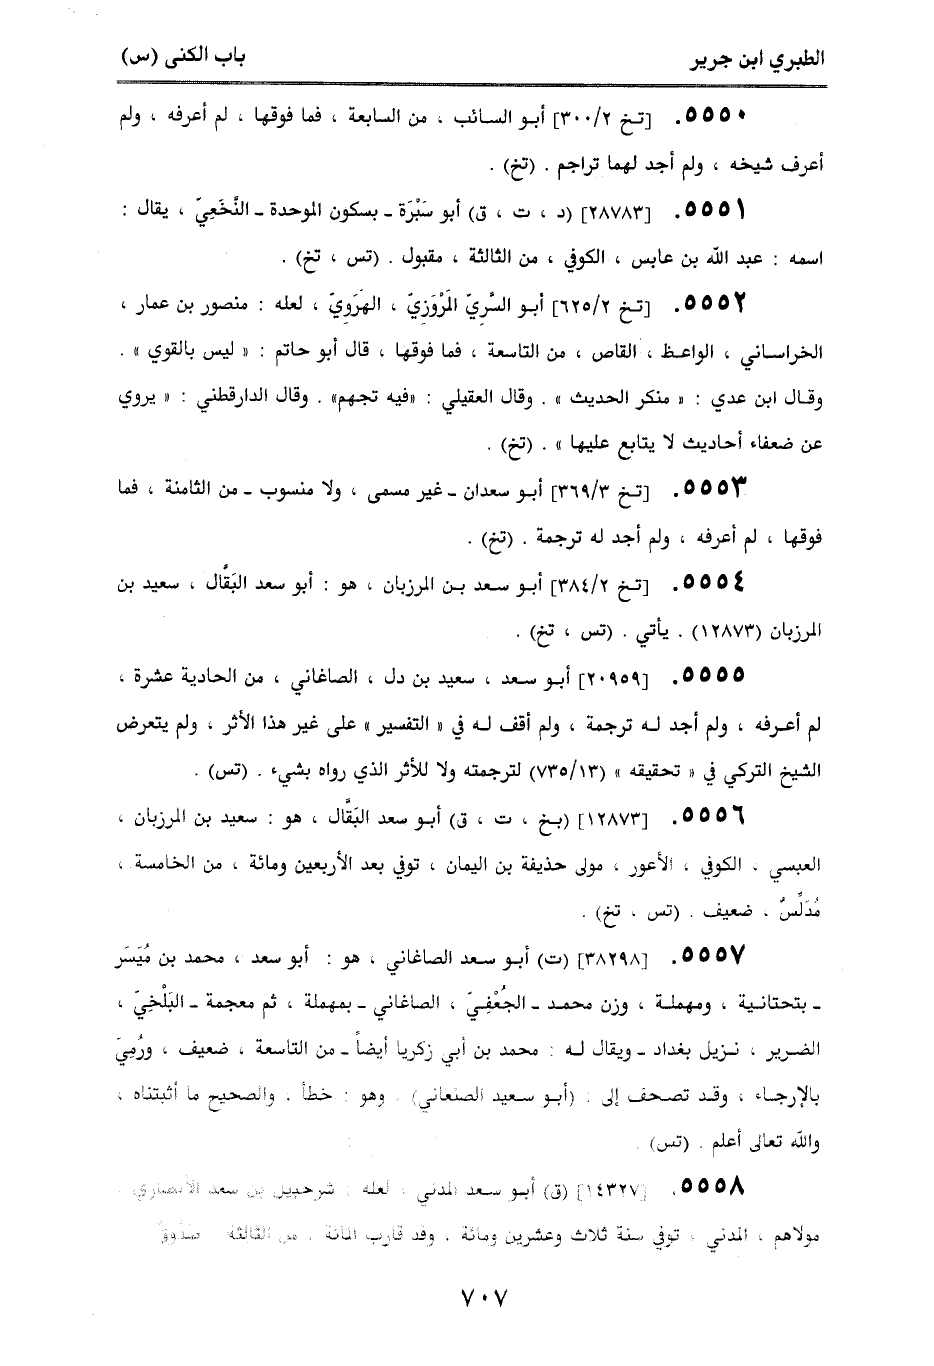 الطبري ابن جرير
باب الكنى (س)
٥٥٥٠. [تخ ٣٠٠/٢] أبو السائب ، من السابعة ، فما فوقها ، لم أعرفه ، ولم
أعرف شيخه ، ولم أجد لهما تراجم . (تخ) .
٥٥٥١. [٢٨٧٨٣] (د ، ت ، ق) أبو سَبْرَة ـ بسكون الموحدة ـ النَّخَعِيّ ، يقال :
اسمه : عبد الله بن عابس ، الكوفي ، من الثالثة ، مقبول . (تس ، تخ) .
٥٥٥٢. [تخ ٦٢٥/٢] أبو السَّرِيّ المَرْوَزِيّ ، الهَرَوِيّ ، لعله : منصور بن عمار ،
الخراساني ، الواعظ ، القاص ، من التاسعة ، فما فوقها ، قال أبو حاتم : « ليس بالقوي » .
وقال ابن عدي : « منكر الحديث » . وقال العقيلي : «فيه تجهم» . وقال الدارقطني : « يروي
عن ضعفاء أحاديث لا يتابع عليها » . (تخ) .
٥٥٥٣. [تخ ٣٦٩/٣] أبو سعدان ـ غير مسمى ، ولا منسوب ـ من الثامنة ، فما
فوقها ، لم أعرفه ، ولم أجد له ترجمة . (تخ) .
٥٥٥٤. [تخ ٣٨٤/٢] أبو سعد بن المرزبان ، هو : أبو سعد البَقَّال ، سعيد بن
المرزبان (١٢٨٧٣) . يأتي . (تس ، تخ) .
٥٥٥٥. [٢٠٩٥٩] أبو سعد ، سعيد بن دل ، الصاغاني ، من الحادية عشرة ،
لم أعرفه ، ولم أجد له ترجمة ، ولم أقف له في « التفسير » على غير هذا الأثر ، ولم يتعرض
الشيخ التركي في « تحقيقه » (٧٣٥/١٣) لترجمته ولا للأثر الذي رواه بشيء . (تس) .
٥٥٥٦. [١٢٨٧٣] (بخ ، ت ، ق) أبو سعد البَقَّال ، هو : سعيد بن المرزبان ،
العبسي ، الكوفي ، الأعور ، مولى حذيفة بن اليمان ، توفي بعد الأربعين ومائة ، من الخامسة ،
مُدَلِّسٌ ، ضعيف . (تس ، تخ) .
٥٥٥٧. [٣٨٢٩٨] (ت) أبو سعد الصاغاني ، هو : أبو سعد ، محمد بن مُيَسَر
ـ بتحتانية ، ومهملة ، وزن محمد ـ الجُعْفِيّ ، الصاغاني ـ بمهملة ، ثم معجمة ـ البَلْخِيّ ،
الضرير ، نزيل بغداد ـ ويقال له : محمد بن أبي زكريا أيضاً ـ من التاسعة ، ضعيف ، ورُمِيَ
بالإرجاء ، وقد تصحف إلى : (أبو سعيد الصنعاني) . وهو : خطأ . والصحيح ما أثبتناه ،
والله تعالى أعلم . (تس) .
٥٥٥٨. [١٤٣٢٧] (ق) أبو سعد المدني ، لعله : شرحبيل بن سعد الأنصاري .
مولاهم ، المدني ، توفي سنة ثلاث وعشرين ومائة ، وقد قارب المائة ، من الثالثة صدوق
٧٠٧